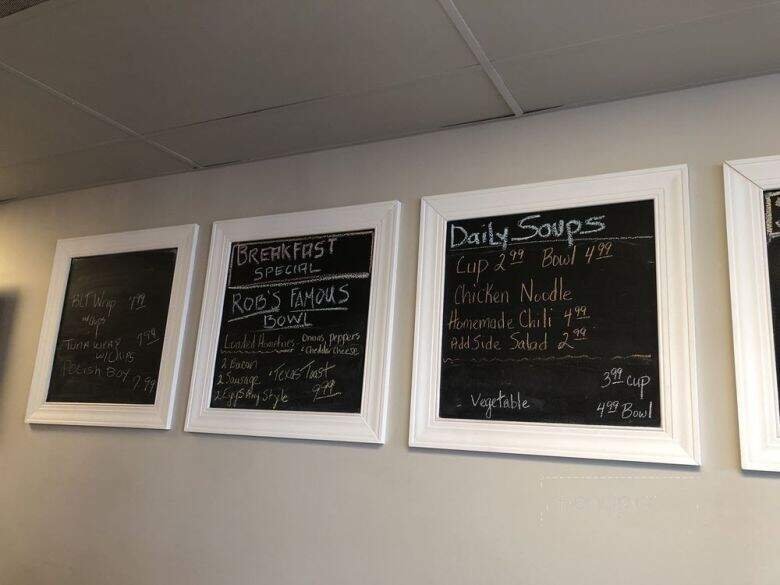 BLT Wrap 7.99
w/chips
Tuna Wrap 7.99
w/chips
Polish Boy 7.99
BREAKFAST
SPECIAL
ROB'S FAMOUS
BOWL
Loaded Homefries Onions, peppers
& Cheddar Cheese
2 Bacon
2 Sausage + Texas Toast
2 Eggs Any Style 9.99
Daily Soups
Cup 2.99 Bowl 4.99
Chicken Noodle
Homemade Chili 4.99
Add Side Salad 2.99
3.99 Cup
- Vegetable 4.99 Bowl